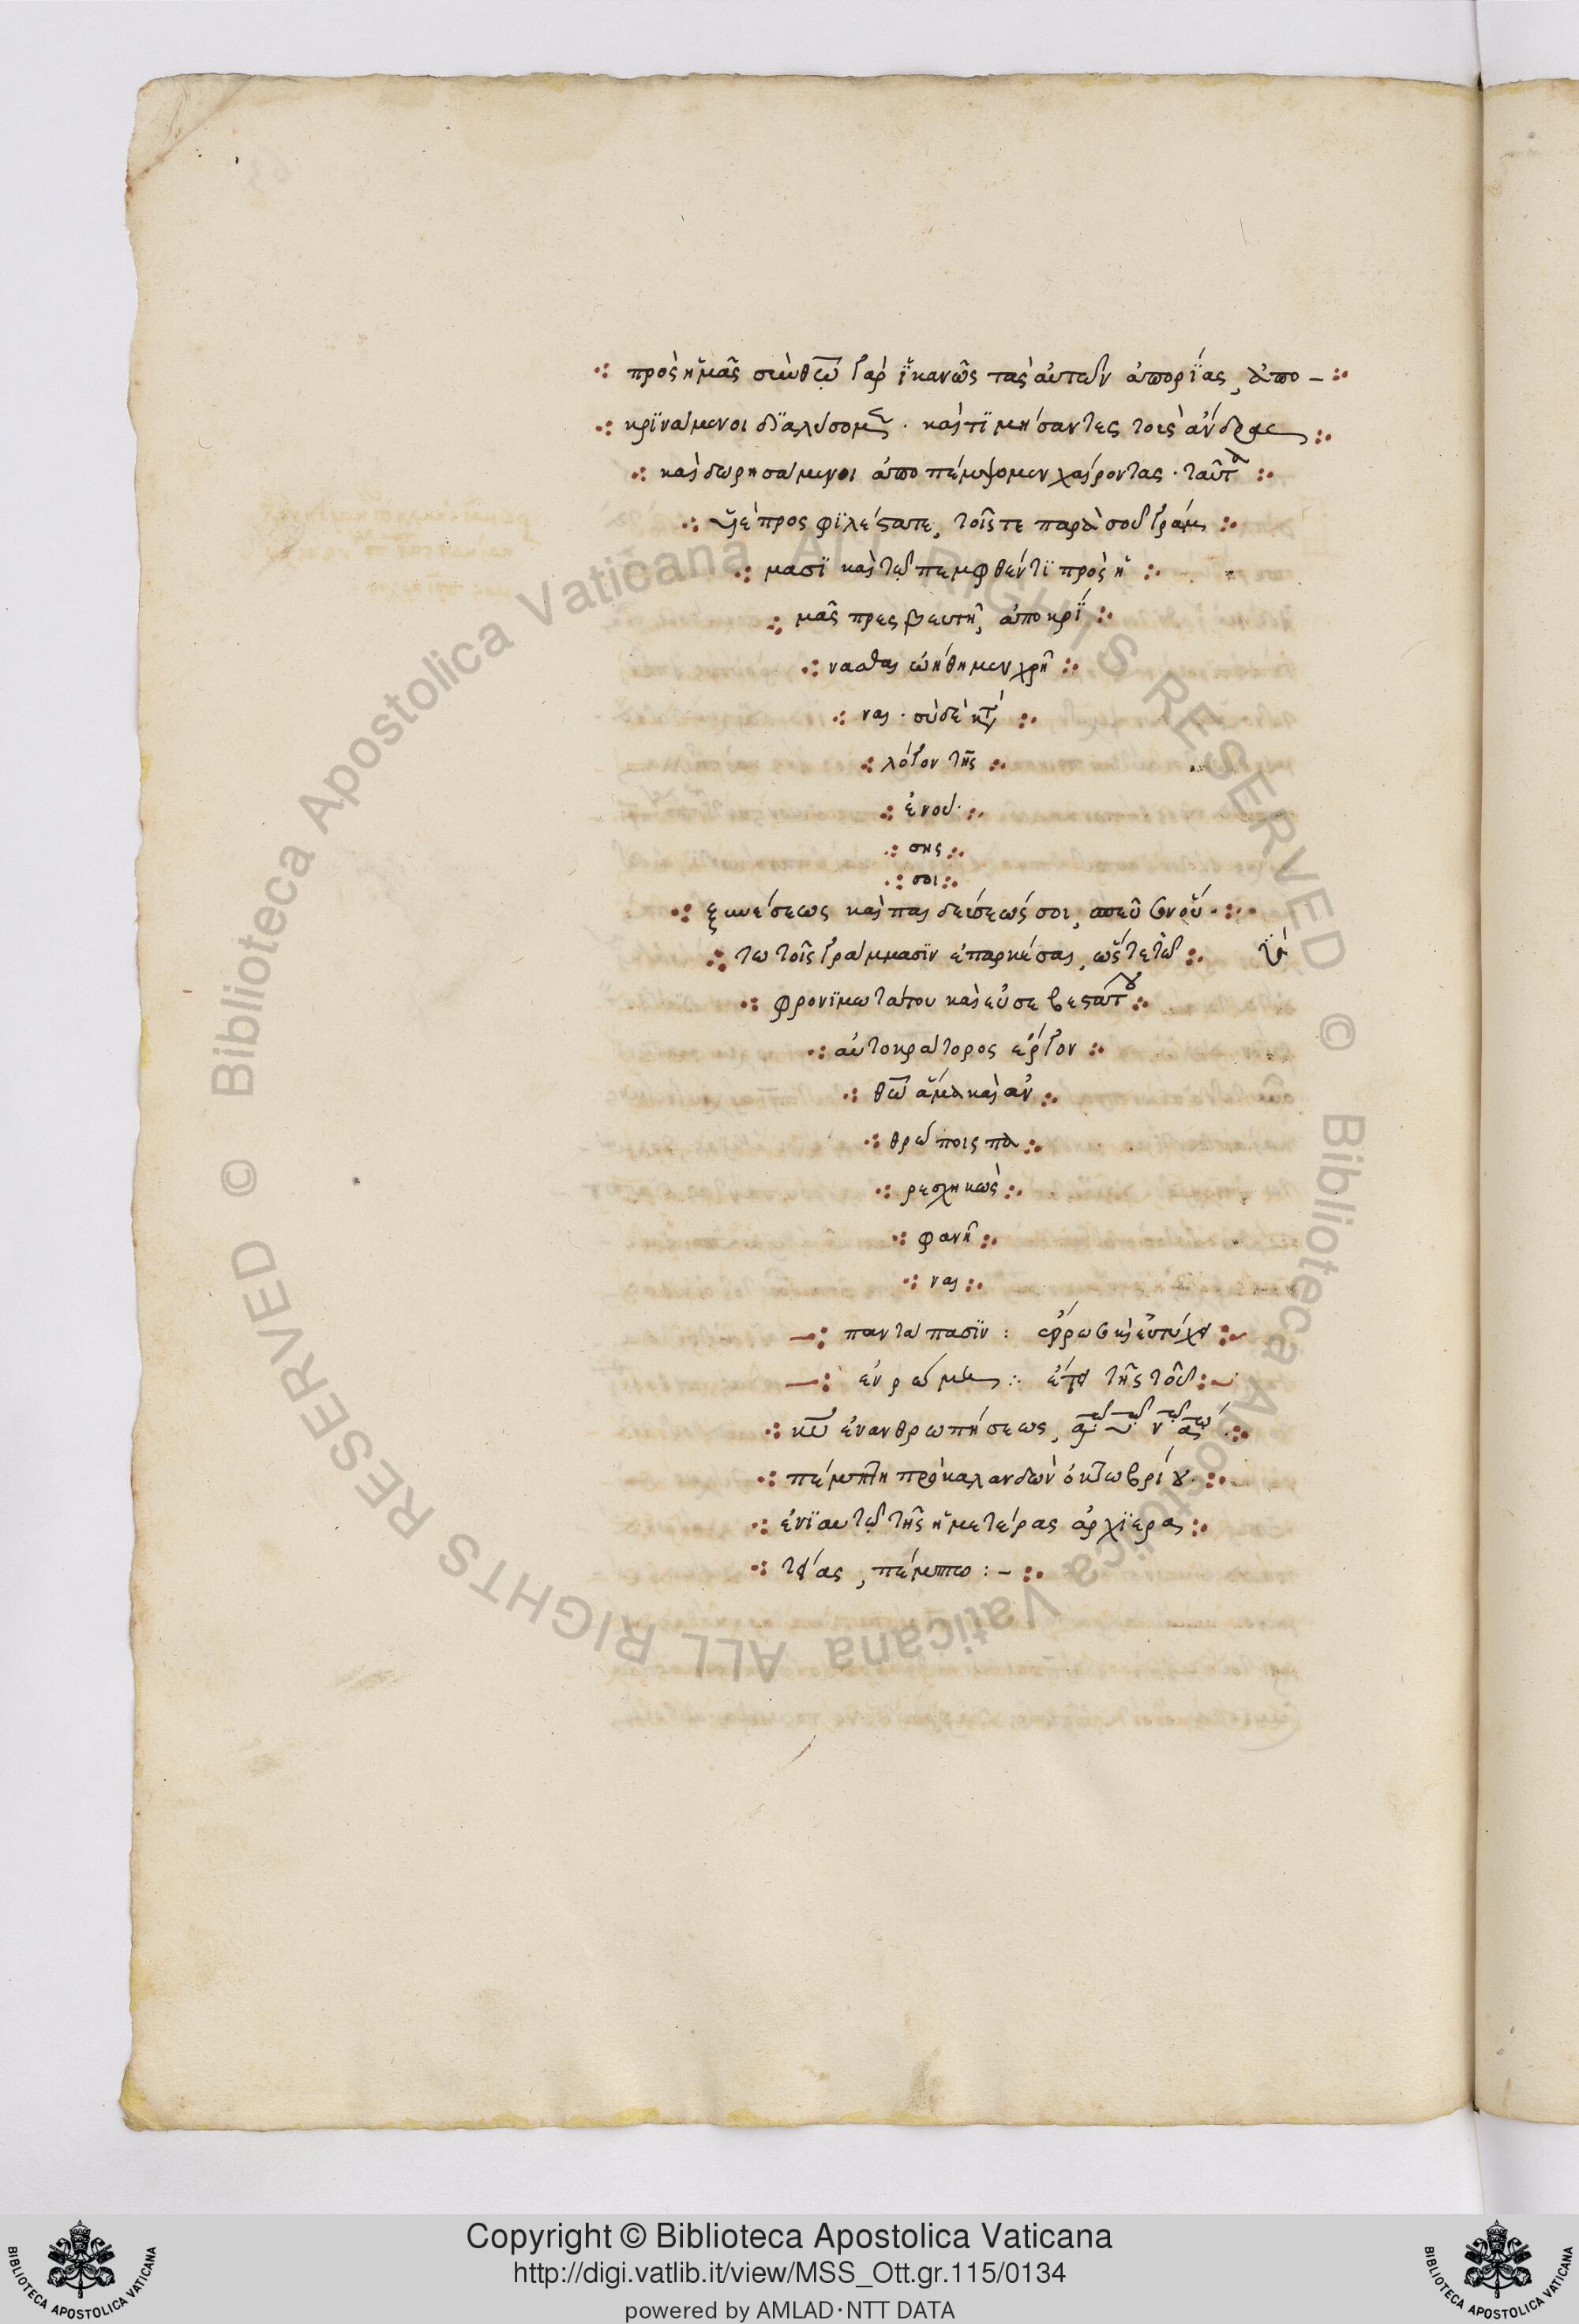 πρὸς ἡμᾶς σὺν θεῷ γὰρ ἱκανῶς τὰς αὐτῶν ἀπορίας, ἀπο-
κρινάμενοι διαλύσομεν. καὶ τιμήσαντες τοὺς ἄνδρας
καὶ δωρησάμενοι ἀποπέμψομεν χαίροντας. ταῦτα
σε προς φιλέστατε, τοῖς τε παρὰ σοῦ γράμ
μασϊ καὶ τῷ πεμφθέντϊ πρὸς ἡ
μᾶς πρεσβευτῇ, ἀποκρί
νασθαι ὠήθημεν χρῆ
ναι. οὐδὲ κτ
λόγον τῆς
ἐνού
σης
σοι
ξυνέσεως καὶ παιδεύσεώς σοι,
τω τοῖς γράμμασϊν ἐπαρκέσαι, ὥστε τῷ
φρονϊμωτάτου καὶ εὐσεβεστάτου
αὐτοκράτορος ἔργον
θῶ ἅμα καὶ ἀν
θρώποις πα
ρεσχηκὼς
φανῆ
ναι
πάντα πασϊν : ἔρρωσο καὶ εὐτύχει
ἐν ῥώμη : ἔτει τῆς τοῦ
κυ ἐνανθρωπήσεως,
πέμπτη πρὸ καλανδῶν ὀκτωβρίου.
ἐνϊαυτῷ τῆς ἡμετέρας ἀρχϊερα
τείας, πέμπτω :-
Copyright © Biblioteca Apostolica Vaticana
http://digi.vatlib.it/view/MSS_Ott.gr.115/0134
powered by AMLAD·NTT DATA